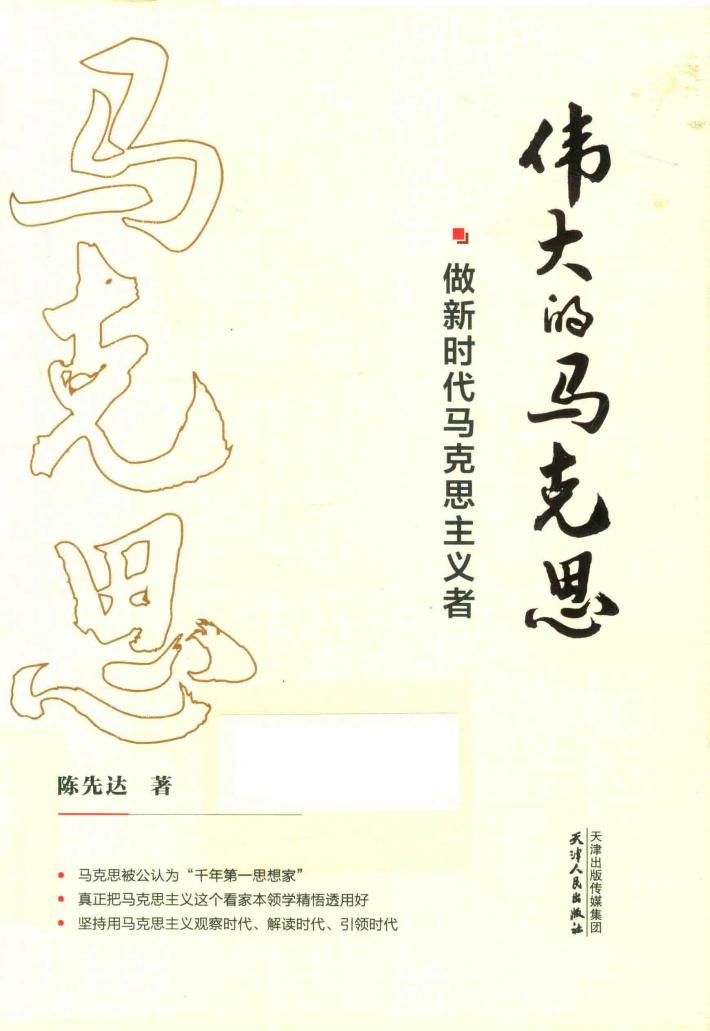 伟大的马克思
做新时代马克思主义者
马克思
陈先达 著
马克思被公认为“千年第一思想家”
真正把马克思主义这个看家本领学精悟透用好
坚持用马克思主义观察时代、解读时代、引领时代
天津出版传媒集团
天津人民出版社